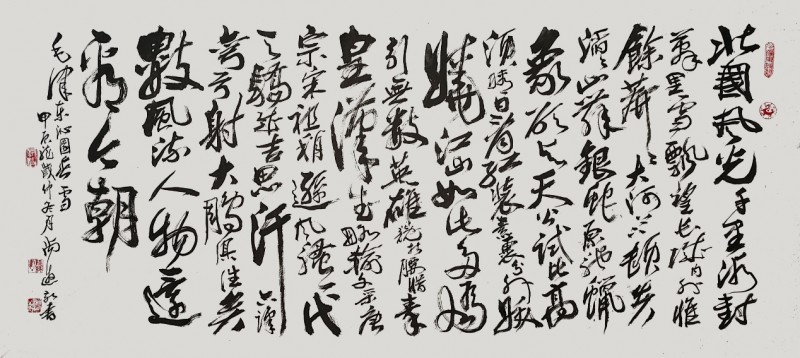 北國風光千里冰封
萬里雪飄望長城內外惟
餘莽莽大河上下頓失
滔滔山舞銀蛇原馳蠟
象欲與天公試比高
須晴日看紅裝素裹分外妖
嬈江山如此多嬌
引無數英雄競折腰惜秦
皇漢武略輸文采唐
宗宋祖稍遜風騷一代
天驕成吉思汗只識
彎弓射大鵰俱往矣
數風流人物還
看今朝
毛澤東沁園春雪
甲辰龍歲仲冬月